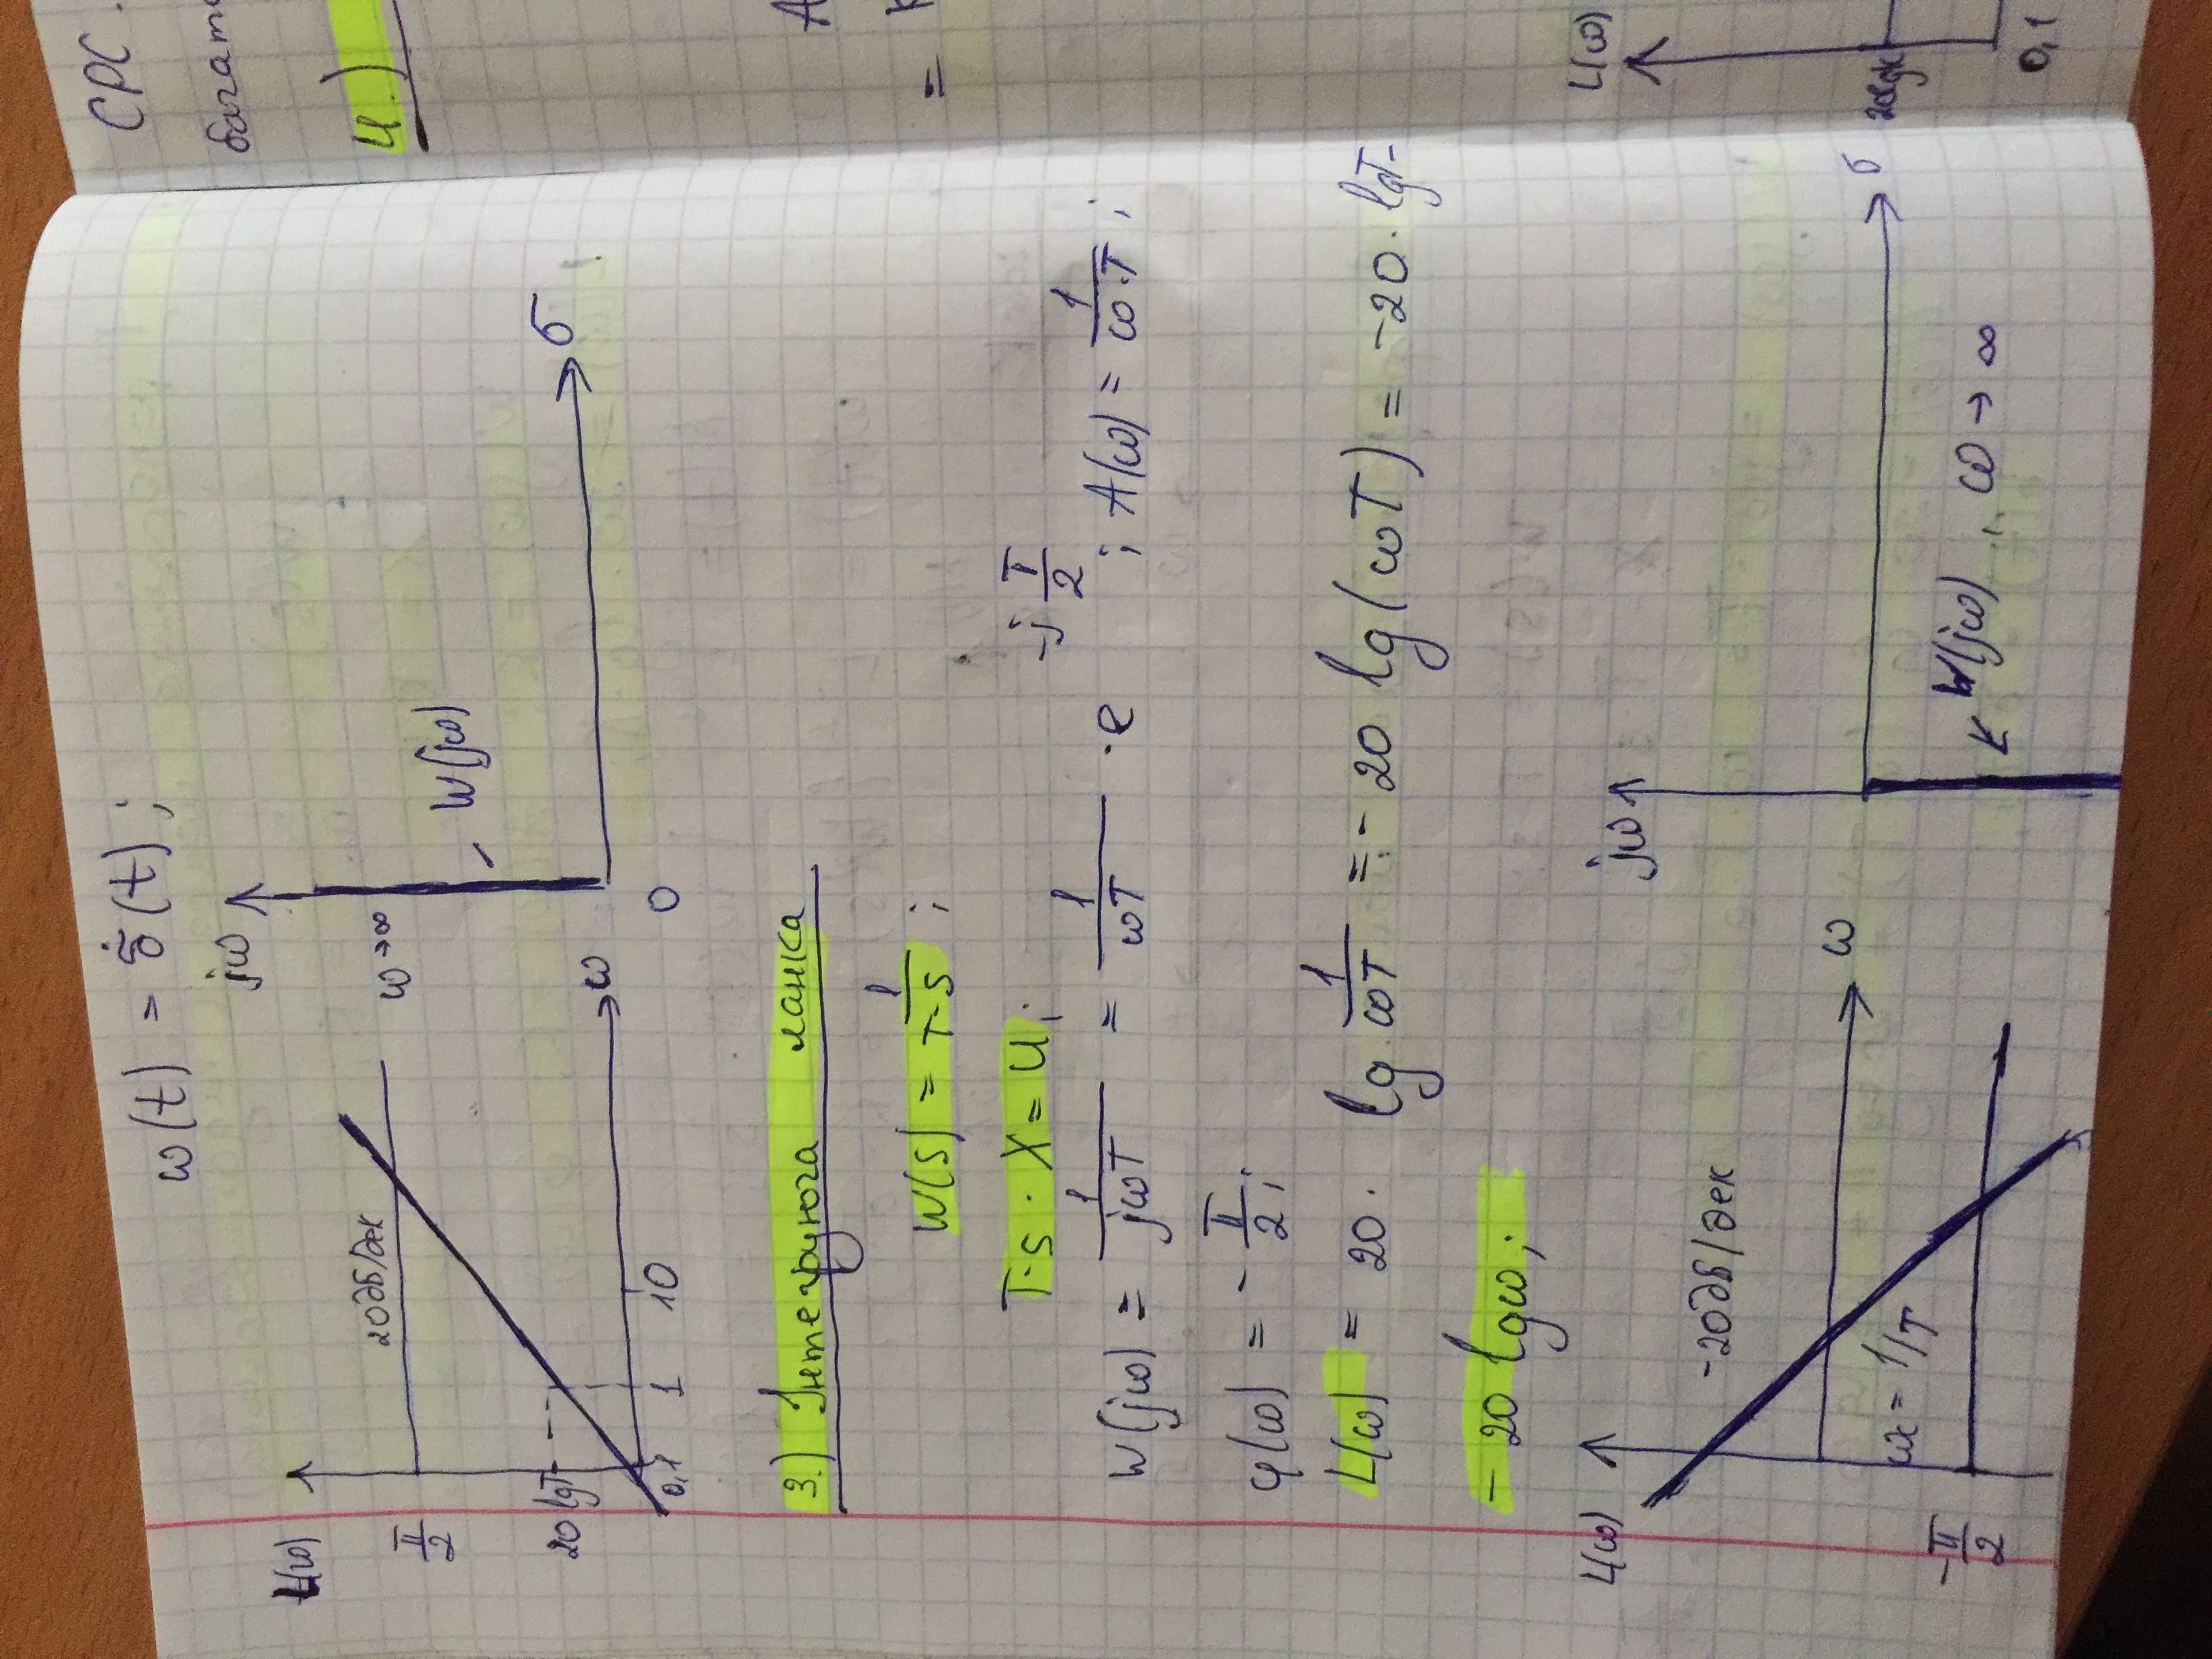 w(t) = δ̇(t);
L(ω)
20дБ/дек
π/2
20 lgT
ω
0,1 1 10
jω
ω→∞
W(jω)
σ
0
3.) Інтегруюча ланка
W(s) = 1/T·s ;
T·s · X = U;
W(jω) = 1/jωT = 1/ωT · e^-j π/2 ; A(ω) = 1/ω·T ;
φ(ω) = - π/2 ;
L(ω) = 20 · lg 1/ωT = - 20 lg(ωT) = -20 · lgT -
- 20 lgω;
L(ω)
-20дБ/дек
ω
ωx = 1/T
-π/2
jω
σ
W(jω) , ω → ∞
СРС.
багат
4.)
A
= K
L(ω)
20lgk
0,1